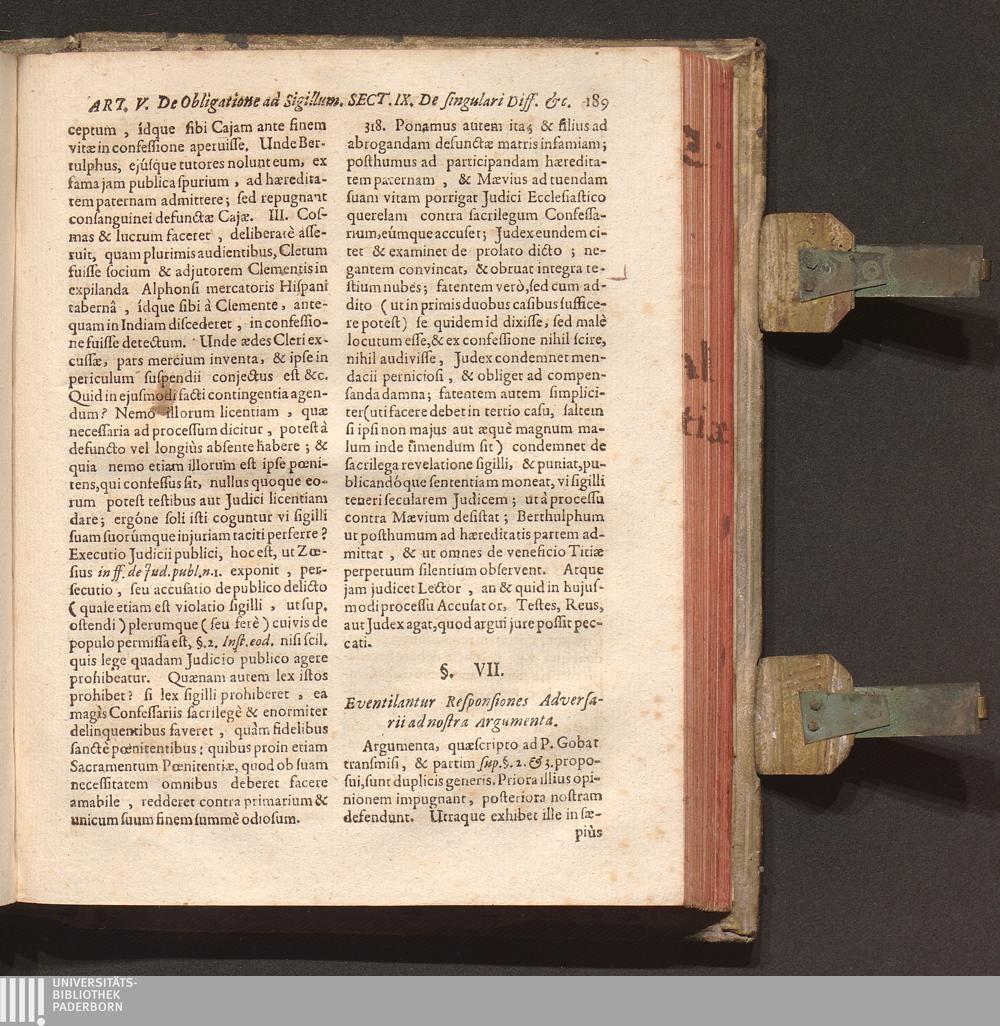 ART. V. De Obligatione ad Sigillum. SECT. IX. De ſingulari Diff. &c. 189
ceptum , ídque ſibi Cajam ante finem
vitæ in confeſſione aperuiſſe. Unde Ber-
tulphus, ejúſque tutores nolunt eum, ex
fama jam publica ſpurium , ad hæredita-
tem paternam admittere; ſed repugnant
conſanguinei defunctæ Cajæ. III. Coſ-
mas & lucrum faceret , deliberatè aſſe-
ruit, quam plurimis audientibus, Cletum
fuiſſe ſocium & adjutorem Clementis in
expilanda Alphonſi mercatoris Hiſpani
tabernâ , ídque ſibi à Clemente , ante-
quam in Indiam diſcederet , in confeſſio-
ne fuiſſe detectum. Unde ædes Cleri ex-
cuſſæ, pars mercium inventa, & ipſe in
periculum ſuſpendii conjectus eſt &c.
Quid in ejuſmodi facti contingentia agen-
dum? Nemo illorum licentiam , quæ
neceſſaria ad proceſſum dicitur , poteſt à
defuncto vel longiùs abſente habere ; &
quia nemo etiam illorum eſt ipſe pœni-
tens, qui confeſſus ſit, nullus quoque eo-
rum poteſt teſtibus aut Judici licentiam
dare; ergóne ſoli iſti coguntur vi ſigilli
ſuam ſuorúmque injuriam taciti perferre?
Executio Judicii publici, hoc eſt, ut Zœ-
ſius in ff. de Jud. publ. n. 1. exponit , per-
ſecutio , ſeu accuſatio de publico delicto
( quale etiam eſt violatio ſigilli , ut ſup.
oſtendi ) plerumque ( ſeu ferè ) cuivis de
populo permiſſa eſt, §. 2. Inſt. eod. niſi ſcil.
quis lege quadam Judicio publico agere
prohibeatur. Quænam autem lex iſtos
prohibet? ſi lex ſigilli prohiberet , ea
magis Confeſſariis ſacrilegè & enormiter
delinquentibus faveret , quàm fidelibus
ſanctè pœnitentibus: quibus proin etiam
Sacramentum Pœnitentiæ, quod ob ſuam
neceſſitatem omnibus deberet facere
amabile , redderet contra primarium &
unicum ſuum finem ſummè odioſum.
318. Ponamus autem ita; & filius ad
abrogandam defunctæ matris infamiam;
poſthumus ad participandam hæredita-
tem paternam , & Mævius ad tuendam
ſuam vitam porrigat Judici Eccleſiaſtico
querelam contra ſacrilegum Confeſſa-
rium, eúmque accuſet; Judex eundem ci-
tet & examinet de prolato dicto ; ne-
gantem convincat, & obruat integra te-
ſtium nubes; fatentem verò, ſed cum ad-
dito ( ut in primis duobus caſibus ſuffice-
re poteſt ) ſe quidem id dixiſſe, ſed malè
locutum eſſe, & ex confeſſione nihil ſcire,
nihil audiviſſe , Judex condemnet men-
dacii pernicioſi , & obliget ad compen-
ſanda damna; fatentem autem ſimplici-
ter (uti facere debet in tertio caſu, ſaltem
ſi ipſi non majus aut æquè magnum ma-
lum inde timendum ſit ) condemnet de
ſacrilega revelatione ſigilli, & puniat, pu-
blicandóque ſententiam moneat, vi ſigilli
teneri ſecularem Judicem ; ut à proceſſu
contra Mævium deſiſtat ; Berthulphum
ut poſthumum ad hæreditatis partem ad-
mittat , & ut omnes de veneficio Titiæ
perpetuum ſilentium obſervent. Atque
jam judicet Lector , an & quid in hujuſ-
modi proceſſu Accuſator, Teſtes, Reus,
aut Judex agat, quod argui jure poſſit pec-
cati.
§. VII.
Eventilantur Reſponſiones Adverſa-
rii ad noſtra Argumenta.
Argumenta, quæ ſcripto ad P. Gobat
tranſmiſi, & partim ſup. §. 2. & 3. propo-
ſui, ſunt duplicis generis. Priora illius opi-
nionem impugnant, poſteriora noſtram
defendunt. Utraque exhibet ille in ſæ-
piùs
al
tiæ
UNIVERSITÄTS-
BIBLIOTHEK
PADERBORN